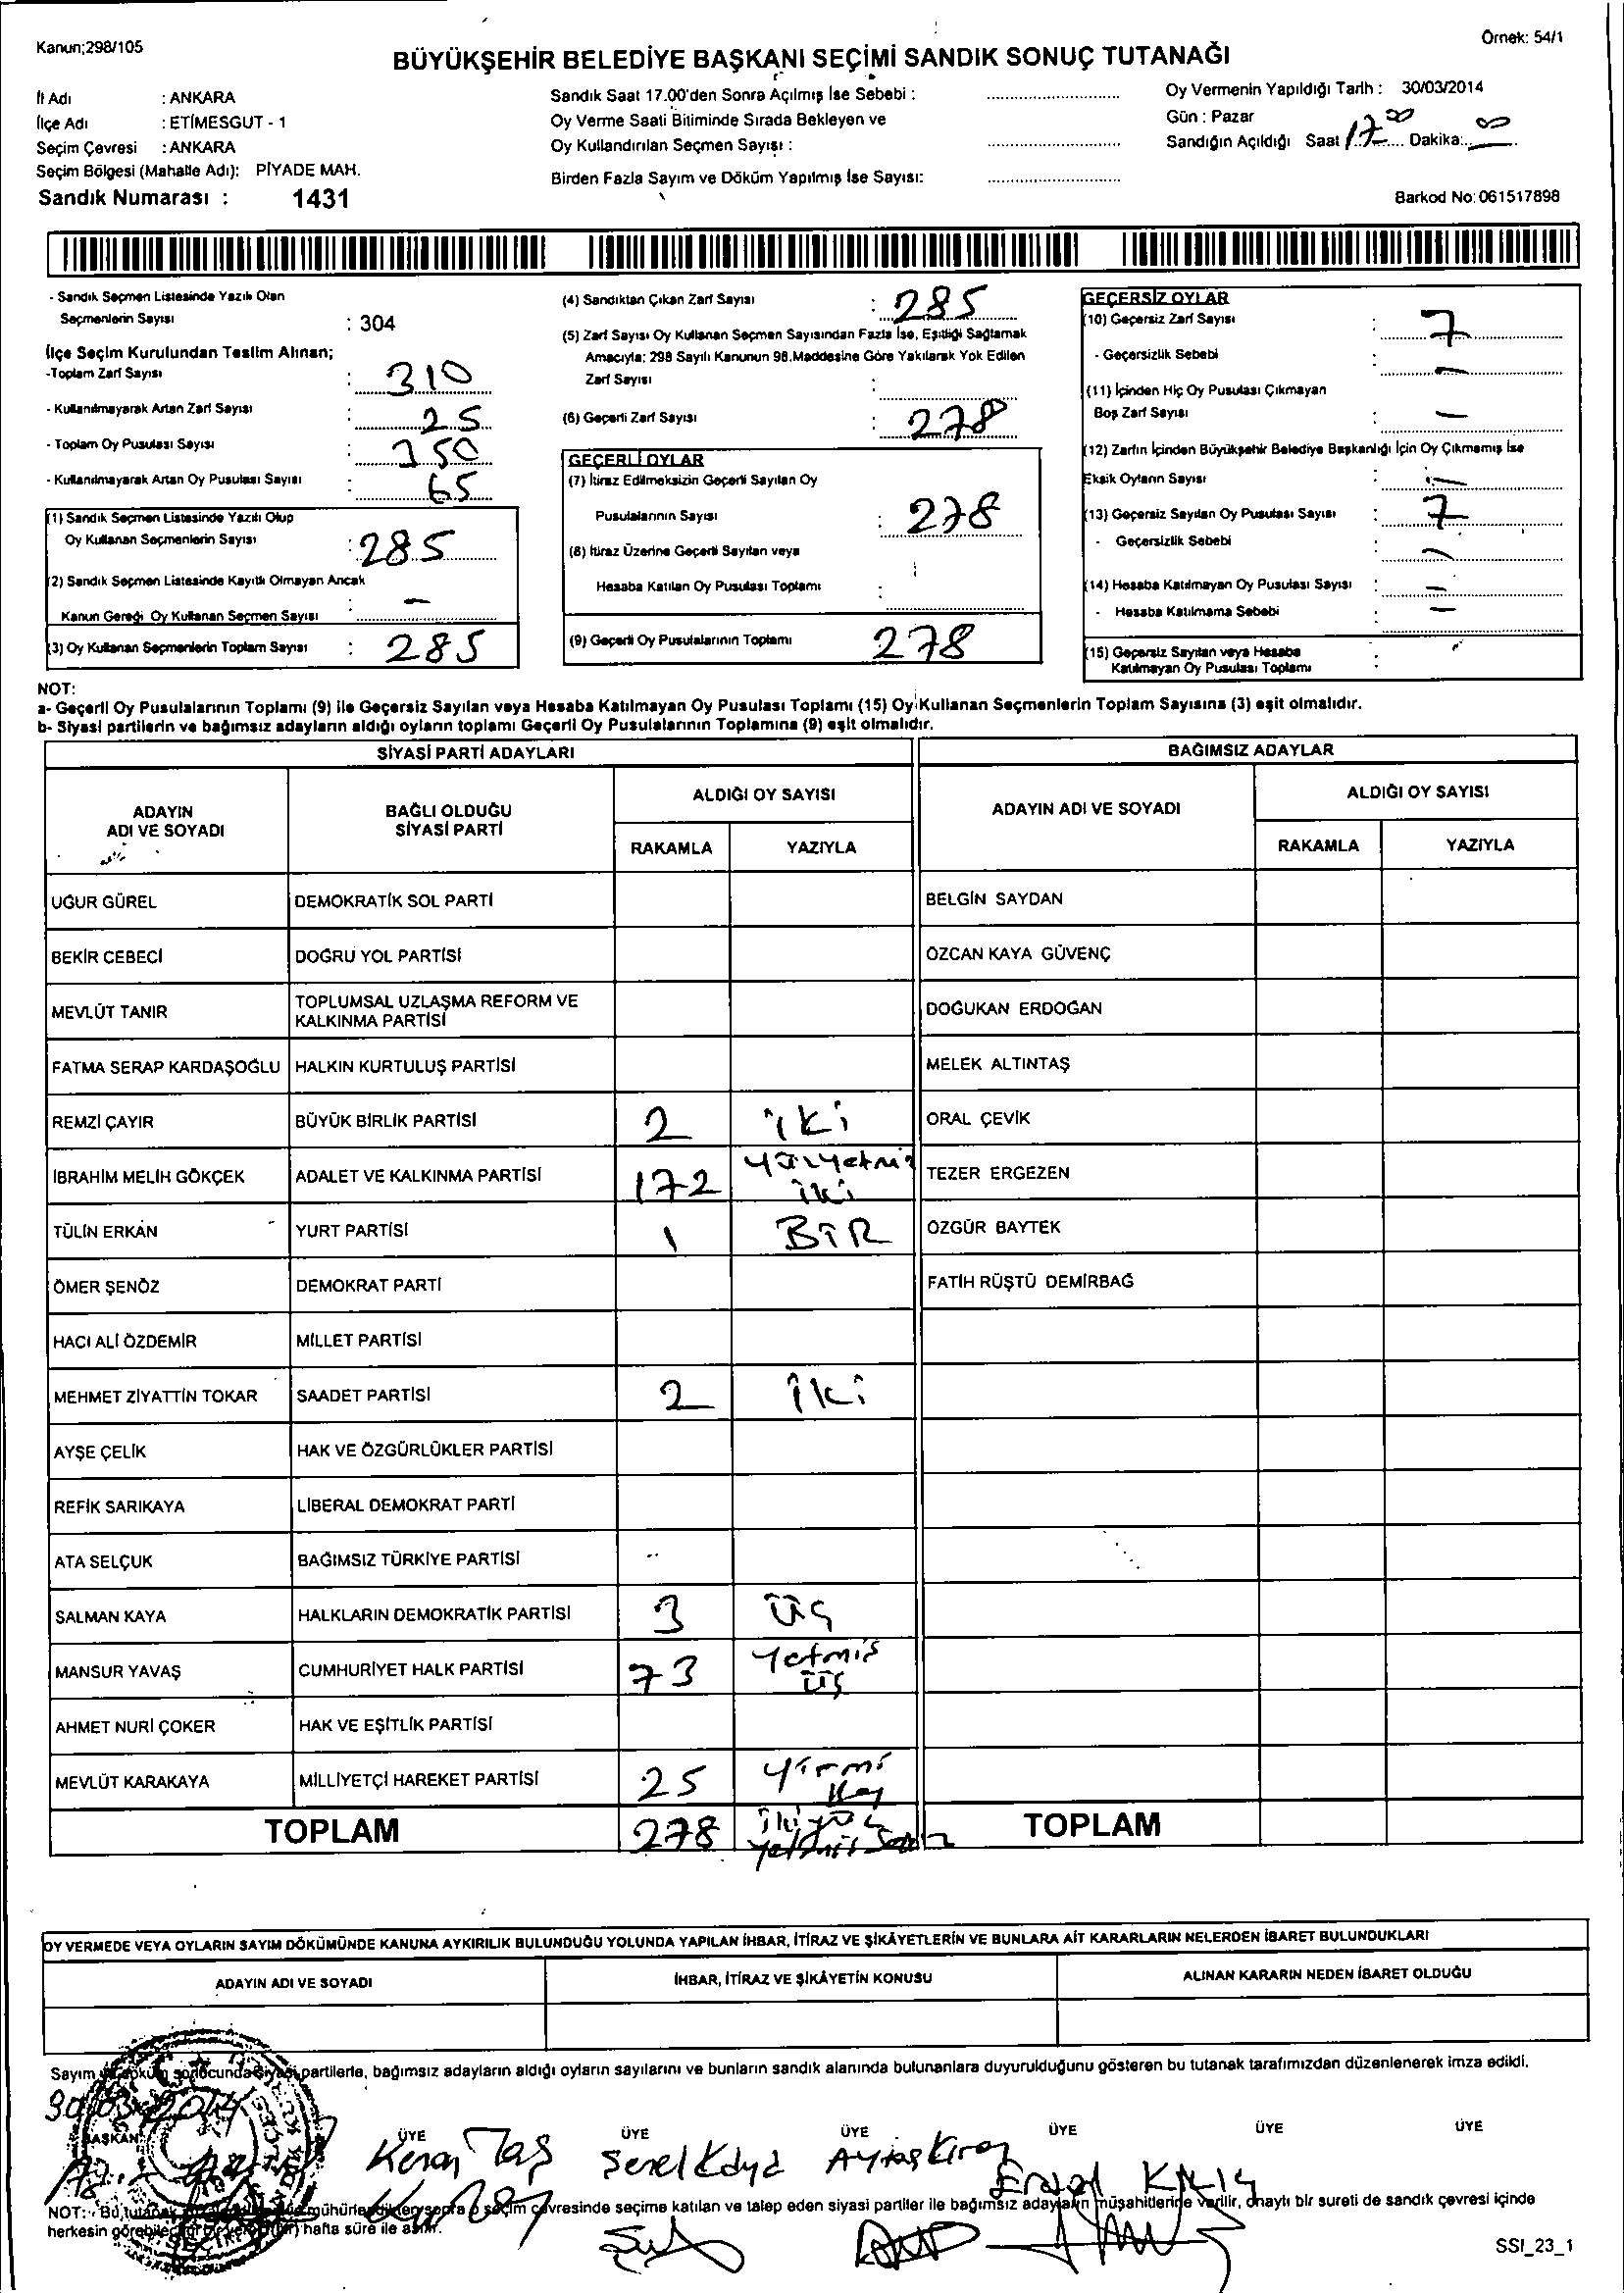 Kanun;298/105
Örnek: 54/1
BÜYÜKŞEHİR BELEDİYE BAŞKANI SEÇİMİ SANDIK SONUÇ TUTANAĞI
İl Adı : ANKARA
İlçe Adı : ETİMESGUT - 1
Seçim Çevresi : ANKARA
Seçim Bölgesi (Mahalle Adı): PİYADE MAH.
Sandık Numarası : 1431
Sandık Saat 17.00'den Sonra Açılmış İse Sebebi :
Oy Verme Saati Bitiminde Sırada Bekleyen ve
Oy Kullandırılan Seçmen Sayısı :
Birden Fazla Sayım ve Döküm Yapılmış İse Sayısı:
Oy Vermenin Yapıldığı Tarih : 30/03/2014
Gün : Pazar
Sandığın Açıldığı Saat 17 00 Dakika: 00
Barkod No: 061517898
- Sandık Seçmen Listesinde Yazılı Olan
Seçmenlerin Sayısı : 304
İlçe Seçim Kurulundan Teslim Alınan;
-Toplam Zarf Sayısı : 310
- Kullanılmayarak Artan Zarf Sayısı : 25
- Toplam Oy Pusulası Sayısı : 350
- Kullanılmayarak Artan Oy Pusulası Sayısı : 65
(1) Sandık Seçmen Listesinde Yazılı Olup
Oy Kullanan Seçmenlerin Sayısı : 285
(2) Sandık Seçmen Listesinde Kayıtlı Olmayan Ancak
Kanun Gereği Oy Kullanan Seçmen Sayısı : -
(3) Oy Kullanan Seçmenlerin Toplam Sayısı : 285
(4) Sandıktan Çıkan Zarf Sayısı : 285
(5) Zarf Sayısı Oy Kullanan Seçmen Sayısından Fazla İse, Eşitliği Sağlamak
Amacıyla; 298 Sayılı Kanunun 98.Maddesine Göre Yakılarak Yok Edilen
Zarf Sayısı :
(6) Geçerli Zarf Sayısı : 278
GEÇERLİ OYLAR
(7) İtiraz Edilmeksizin Geçerli Sayılan Oy
Pusulalarının Sayısı : 278
(8) İtiraz Üzerine Geçerli Sayılan veya
Hesaba Katılan Oy Pusulası Toplamı :
(9) Geçerli Oy Pusulalarının Toplamı 278
GEÇERSİZ OYLAR
(10) Geçersiz Zarf Sayısı : 7
- Geçersizlik Sebebi : -
(11) İçinden Hiç Oy Pusulası Çıkmayan
Boş Zarf Sayısı : -
(12) Zarfın İçinden Büyükşehir Belediye Başkanlığı İçin Oy Çıkmamış İse
Eksik Oyların Sayısı : -
(13) Geçersiz Sayılan Oy Pusulası Sayısı : 7
- Geçersizlik Sebebi : -
(14) Hesaba Katılmayan Oy Pusulası Sayısı : -
- Hesaba Katılmama Sebebi : -
(15) Geçersiz Sayılan veya Hesaba
Katılmayan Oy Pusulası Toplamı :
NOT:
a- Geçerli Oy Pusulalarının Toplamı (9) ile Geçersiz Sayılan veya Hesaba Katılmayan Oy Pusulası Toplamı (15) Oy Kullanan Seçmenlerin Toplam Sayısına (3) eşit olmalıdır.
b- Siyasi partilerin ve bağımsız adayların aldığı oyların toplamı Geçerli Oy Pusulalarının Toplamına (9) eşit olmalıdır.
SİYASİ PARTİ ADAYLARI
BAĞIMSIZ ADAYLAR
ADAYIN ADI VE SOYADI
BAĞLI OLDUĞU SİYASİ PARTİ
ALDIĞI OY SAYISI
RAKAMLA YAZIYLA
ADAYIN ADI VE SOYADI
ALDIĞI OY SAYISI
RAKAMLA YAZIYLA
UĞUR GÜREL DEMOKRATİK SOL PARTİ BELGİN SAYDAN
BEKİR CEBECİ DOĞRU YOL PARTİSİ ÖZCAN KAYA GÜVENÇ
MEVLÜT TANIR TOPLUMSAL UZLAŞMA REFORM VE KALKINMA PARTİSİ DOĞUKAN ERDOĞAN
FATMA SERAP KARDAŞOĞLU HALKIN KURTULUŞ PARTİSİ MELEK ALTINTAŞ
REMZİ ÇAYIR BÜYÜK BİRLİK PARTİSİ 2 iki ORAL ÇEVİK
İBRAHİM MELİH GÖKÇEK ADALET VE KALKINMA PARTİSİ 172 yüzyetmiş iki TEZER ERGEZEN
TÜLİN ERKAN YURT PARTİSİ 1 BİR ÖZGÜR BAYTEK
ÖMER ŞENÖZ DEMOKRAT PARTİ FATİH RÜŞTÜ DEMİRBAĞ
HACI ALİ ÖZDEMİR MİLLET PARTİSİ
MEHMET ZİYATTİN TOKAR SAADET PARTİSİ 2 iki
AYŞE ÇELİK HAK VE ÖZGÜRLÜKLER PARTİSİ
REFİK SARIKAYA LİBERAL DEMOKRAT PARTİ
ATA SELÇUK BAĞIMSIZ TÜRKİYE PARTİSİ
SALMAN KAYA HALKLARIN DEMOKRATİK PARTİSİ 3 üç
MANSUR YAVAŞ CUMHURİYET HALK PARTİSİ 73 Yetmiş üç
AHMET NURİ ÇOKER HAK VE EŞİTLİK PARTİSİ
MEVLÜT KARAKAYA MİLLİYETÇİ HAREKET PARTİSİ 25 yirmi
TOPLAM 278 ikiyüz yetmiş sekiz TOPLAM
OY VERMEDE VEYA OYLARIN SAYIM DÖKÜMÜNDE KANUNA AYKIRILIK BULUNDUĞU YOLUNDA YAPILAN İHBAR, İTİRAZ VE ŞİKÂYETLERİN VE BUNLARA AİT KARARLARIN NELERDEN İBARET BULUNDUKLARI
ADAYIN ADI VE SOYADI İHBAR, İTİRAZ VE ŞİKÂYETİN KONUSU ALINAN KARARIN NEDEN İBARET OLDUĞU
Sayım partilerle, bağımsız adayların aldığı oyların sayılarını ve bunların sandık alanında bulunanlara duyurulduğunu gösteren bu tutanak tarafımızdan düzenlenerek imza edildi.
30/03/2014
BAŞKAN ÜYE ÜYE ÜYE ÜYE ÜYE ÜYE
Kenan Taş Şenel Kaya Aytaş Kıraç
NOT: Bu tutanak seçim çevresinde seçime katılan ve talep eden siyasi partiler ile bağımsız adayların müşahitlerine verilir, onaylı bir sureti de sandık çevresi içinde
herkesin hafta süre ile asılır.
SSI_23_1